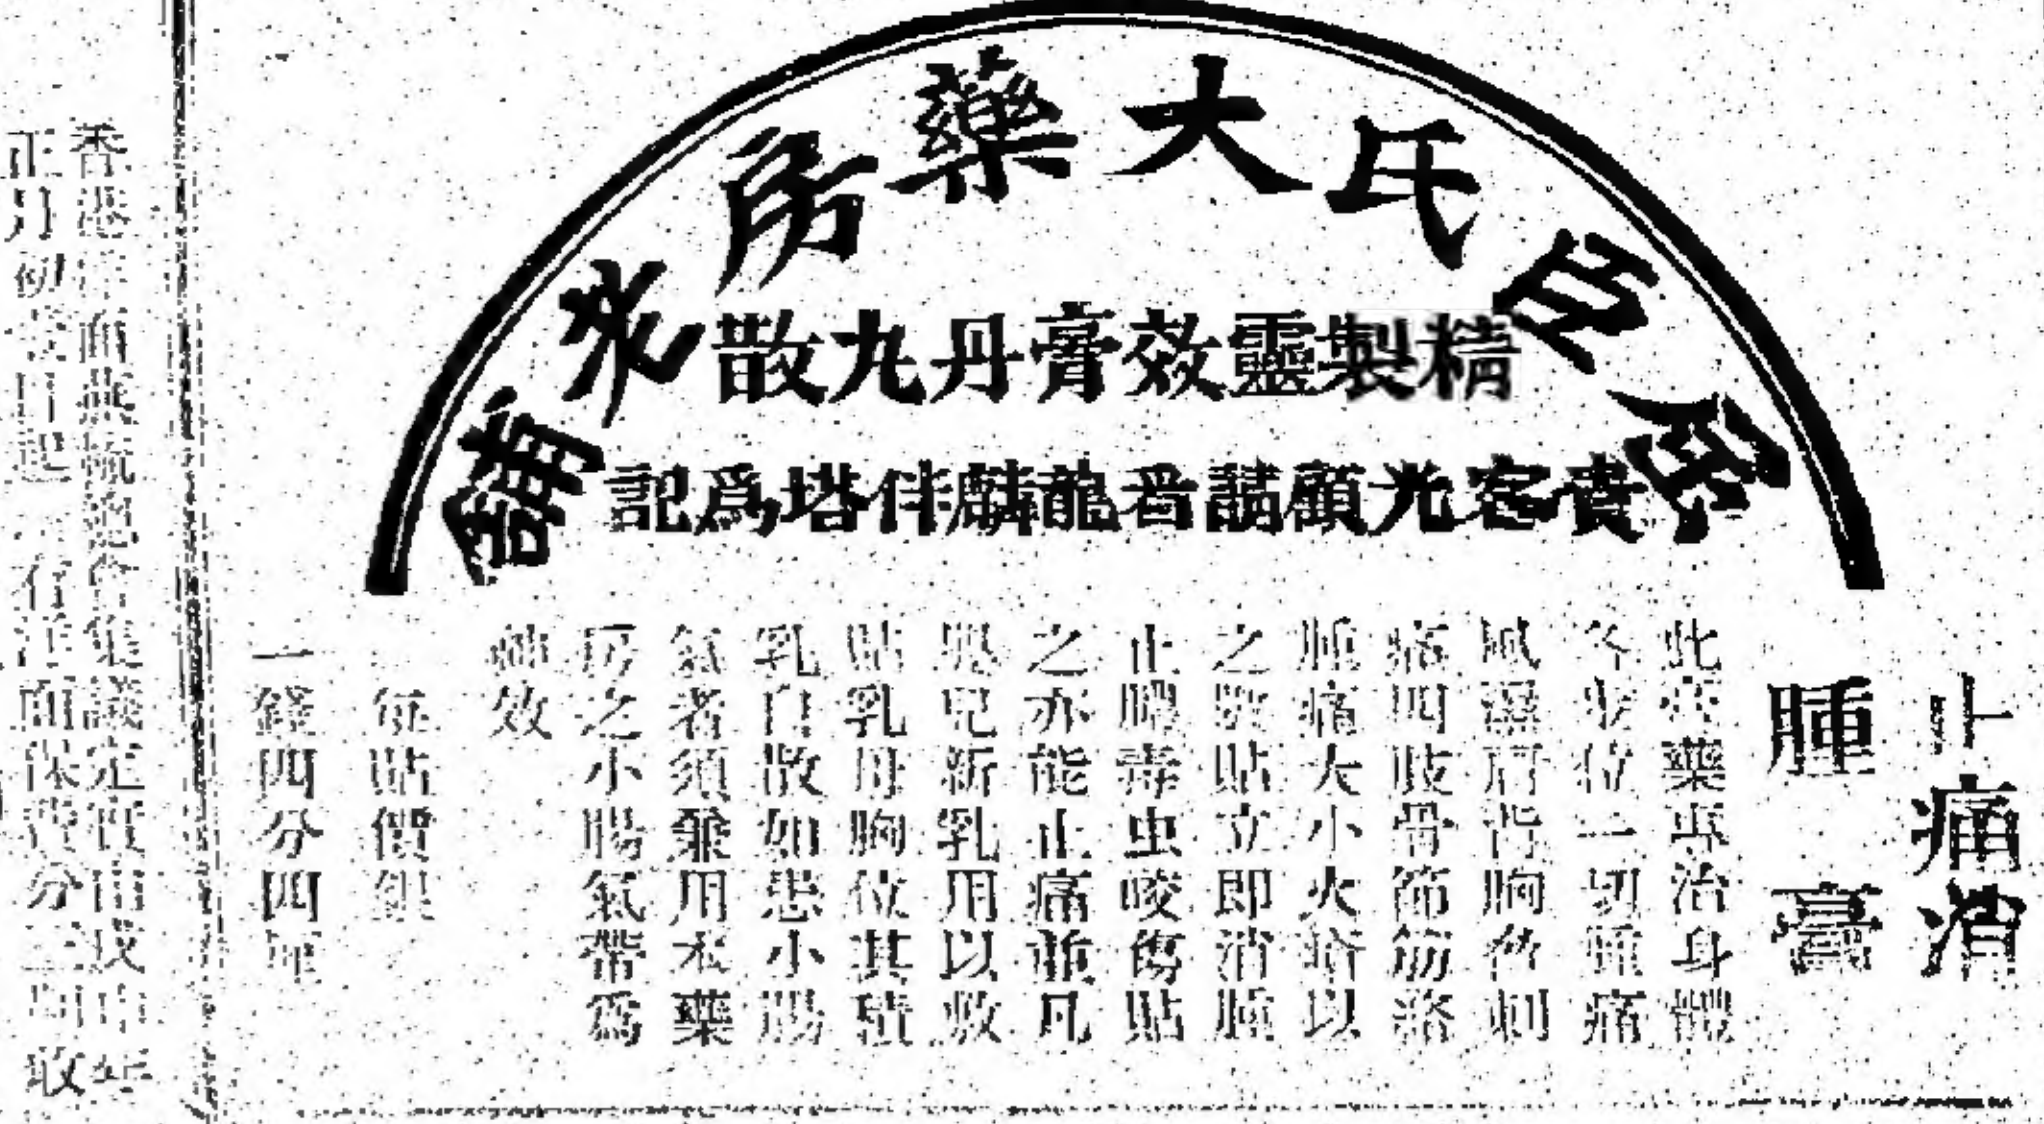 屈臣氏大藥房老鋪
精製靈效膏丹丸散
貴客光顧請看龍麟伴塔為記
止痛消
腫膏
此膏藥專治身體
各部位一切腫痛
風濕肩背胸脅刺
痛四肢骨節筋絡
腫痛大小火瘡以
之敷貼立即消腫
止膿毒虫咬傷貼
之亦能止痛並凡
嬰兒新乳用以敷
貼乳母胸位其積
乳自散如患小腸
氣者須兼用本藥
房之小腸氣帶為
神效
每貼價銀
一錢四分四厘
香港 面 議定 由 年
正月初 日起 存洋面保費分 均收